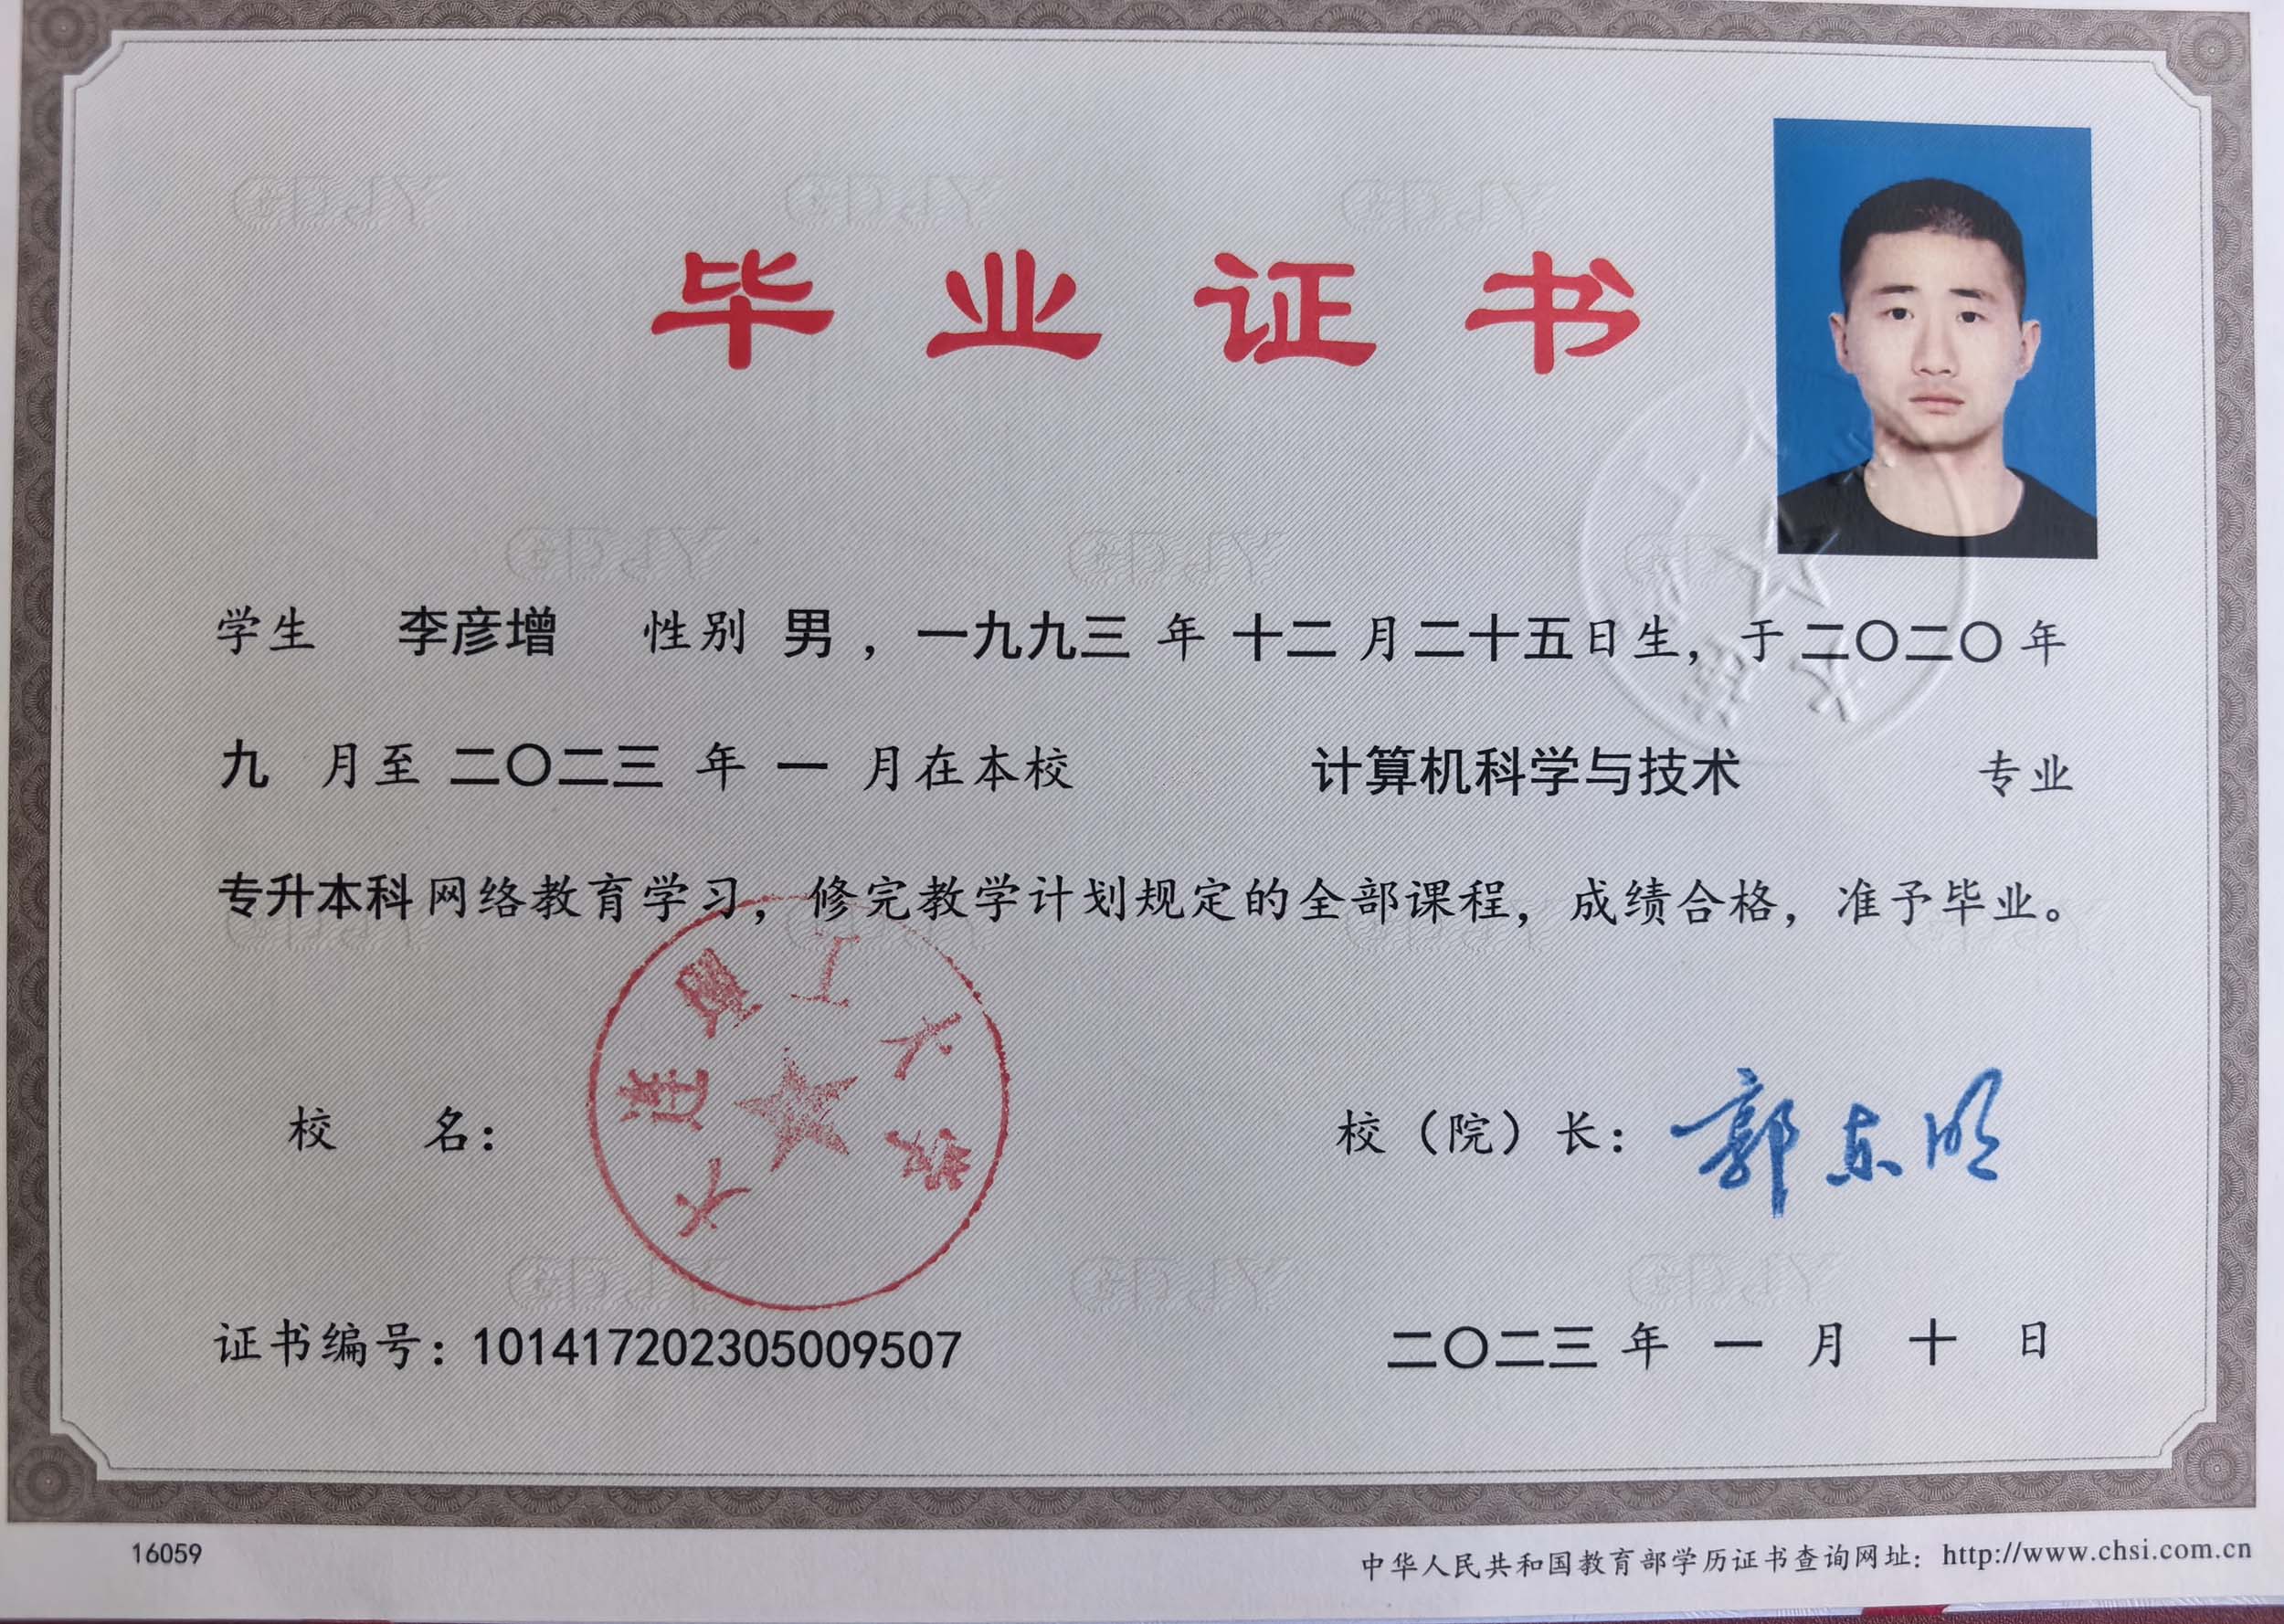 毕业证书
学生 李彦增 性别 男，一九九三 年 十二 月二十五日生，于二〇二〇年
九 月至 二〇二三 年 一 月在本校 计算机科学与技术 专业
专升本科网络教育学习，修完教学计划规定的全部课程，成绩合格，准予毕业。
大连理工大学
校 名： 校（院）长：郭东明
证书编号：101417202305009507 二〇二三 年 一 月 十 日
16059 中华人民共和国教育部学历证书查询网址：http://www.chsi.com.cn